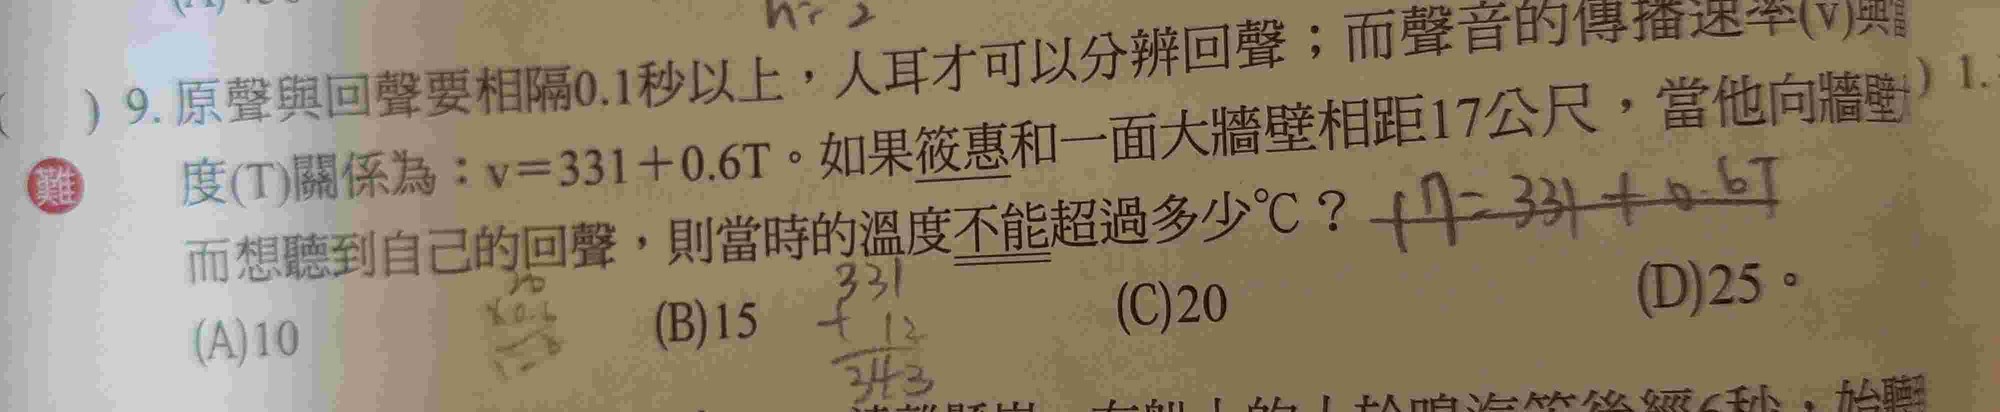 n= 2
( ) 9. 原聲與回聲要相隔0.1秒以上，人耳才可以分辨回聲；而聲音的傳播速率(v)與
難 度(T)關係為：v＝331＋0.6T。如果筱惠和一面大牆壁相距17公尺，當他向牆壁 ) 1.
而想聽到自己的回聲，則當時的溫度不能超過多少℃？ 17=331+0.6T
(A)10 (B)15 (C)20 (D)25。
20
×0.6
331
+ 12
343